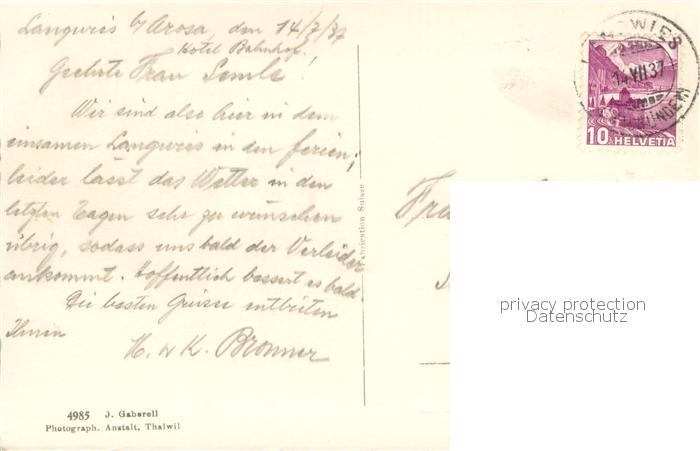 Langwies b/ Arosa, den 14/7/37
Hotel Bahnhof.
Geehrte Frau Semle!
Wir sind also hier in dem
einsamen Langwies in den ferien;
leider lässt das Wetter in den
letzten Tagen sehr zu wünschen
übrig, sodass uns bald der Verleider
ankommt. Hoffentlich bessert es bald
Die besten Grüsse entbieten
Ihnen
H. & K. Bronner
4985 J. Gaberell
Photograph. Anstalt, Thalwil
Fabrication Suisse
14.VII.37
10 HELVETIA
Fra
privacy protection
Datenschutz